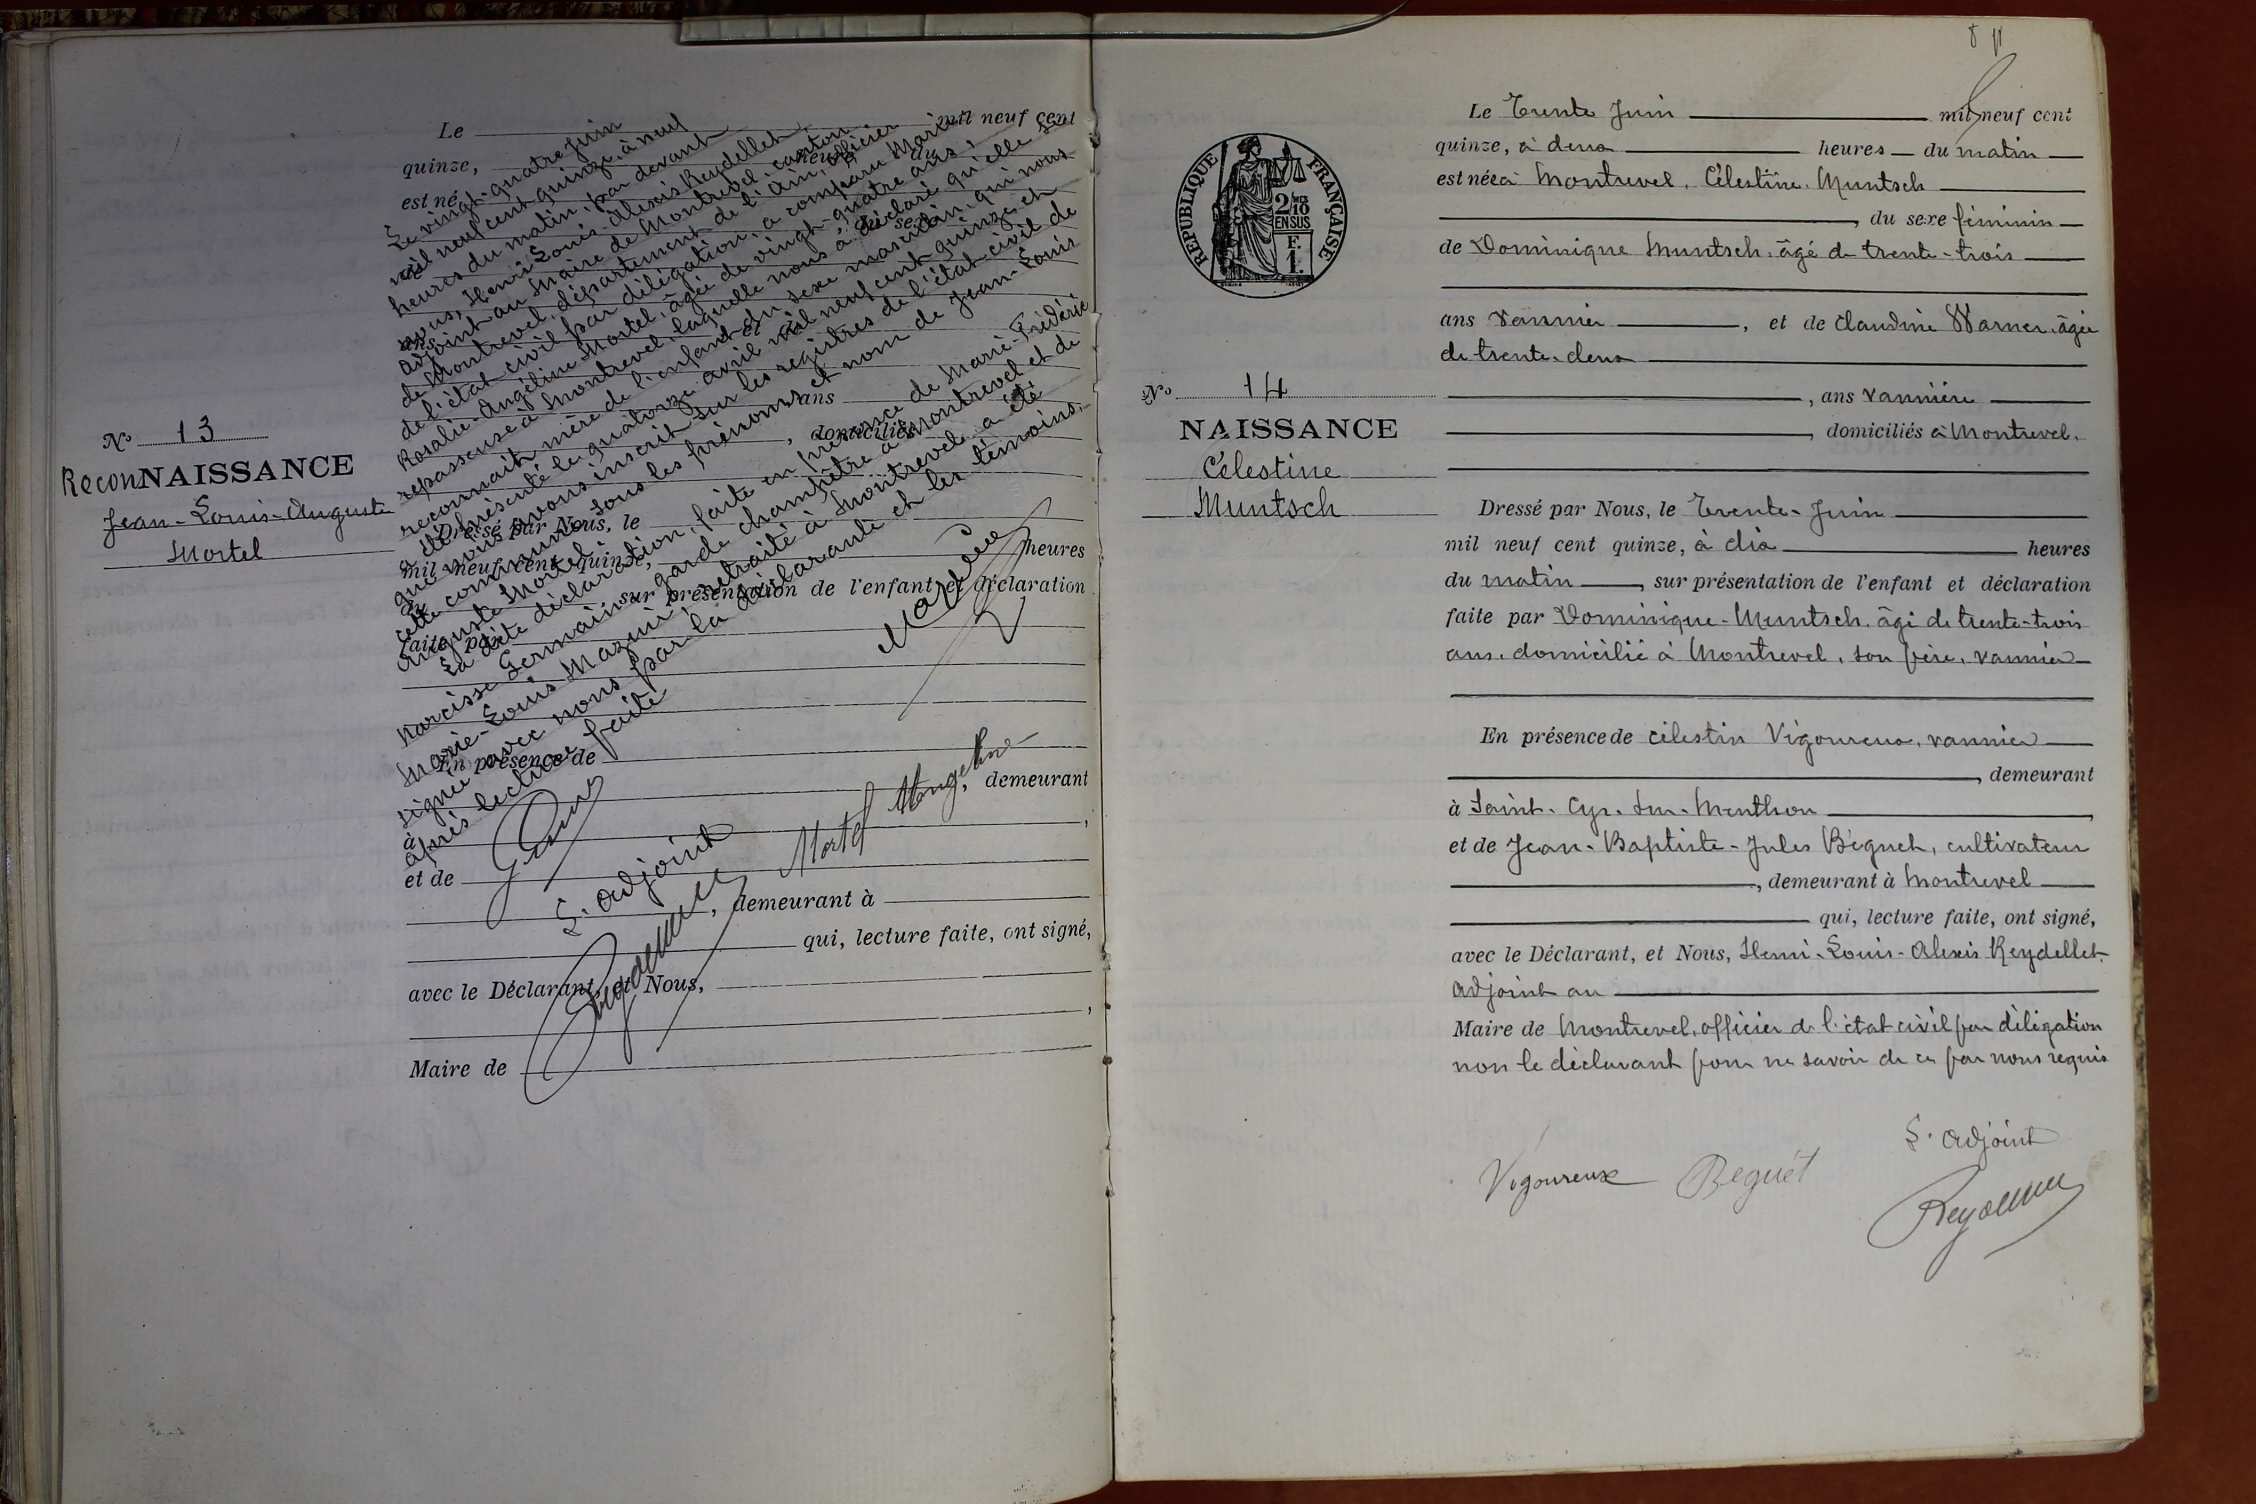 N° 13
ReconNAISSANCE
Jean-Louis-Auguste
Mortel
Le mil neuf cent
quinze, heures du
est né
du sexe
ans et
ans
, domiciliés
Dressé par Nous, le
mil neuf cent quinze, heures
du sur présentation de l'enfant et déclaration
faite par
En présence de
, demeurant
à ,
et de
, demeurant à
qui, lecture faite, ont signé,
avec le Déclarant, et Nous,
,
Maire de
Le vingt-quatre Juin
mil neuf cent quinze, à neuf
heures du matin, par devant
nous, Henri Louis-Alexis Reydellet,
adjoint au Maire de Montrevel, canton
de Montrevel, département de l'Ain, officier
de l'état civil par délégation, a comparu Marie
Rosalie-Angéline Mortel, âgée de vingt-quatre ans,
repasseuse à Montrevel, laquelle nous a déclaré qu'elle
reconnait mère de l'enfant du sexe masculin, qui nous
a été présenté le quatorze avril mil neuf cent quinze et
que nous avons inscrit sur les registres de l'état civil de
cette commune sous les prénoms et nom de Jean-Louis
Auguste Mortel.
La dite déclaration, faite en présence de Marie-Frédéric
Narcisse Germain, garde champêtre à Montrevel et de
Marie-Louis Mazuir, retraité à Montrevel, a été
signée avec nous par la déclarante et les témoins,
après lecture faite
Mortel Angeline
L. adjoint
8 11
Le Trente Juin mil neuf cent
quinze, à deux heures du matin
est née à Montrevel, Célestine Muntsch
, du sexe féminin
de Dominique Muntsch, âgé de trente-trois
ans vannier , et de Claudine Warner, âgée
de trente-deux
, ans vannière
, domiciliés à Montrevel.
Dressé par Nous, le Trente-Juin
mil neuf cent quinze, à dix heures
du matin , sur présentation de l'enfant et déclaration
faite par Dominique-Muntsch, âgé de trente-trois
ans, domicilié à Montrevel, son père, vannier
En présence de célestin Vigoureux, vannier
, demeurant
à Saint-Cyr-sur-Menthon ,
et de Jean-Baptiste-Jules Béguet, cultivateur
, demeurant à Montrevel
qui, lecture faite, ont signé,
avec le Déclarant, et Nous, Henri-Louis-Alexis Reydellet
adjoint au
Maire de Montrevel, officier de l'état civil par délégation
non le déclarant pour ne savoir de ce par nous requis
RÉPUBLIQUE FRANÇAISE
2/10
EN SUS
N° 14
NAISSANCE
Célestine
Muntsch
L. adjoint
Vigoureux Béguet
Reydellet